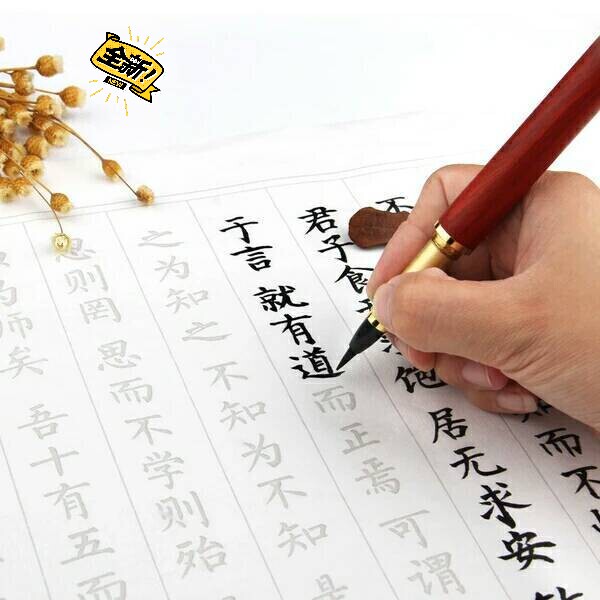 全新!
NEW
不 而不
君子食 饱 居无求安
于言 就有道而正焉 可谓
之为知之 不知为不知 是
思则罔 思而不学则殆
为师矣 吾十有五而